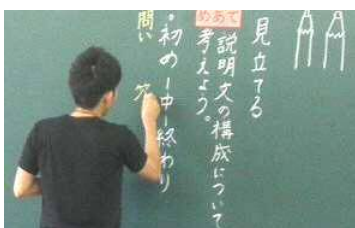 見立てる
めあて
説明文の構成について
考えよう。
・初め－中－終わり
問い